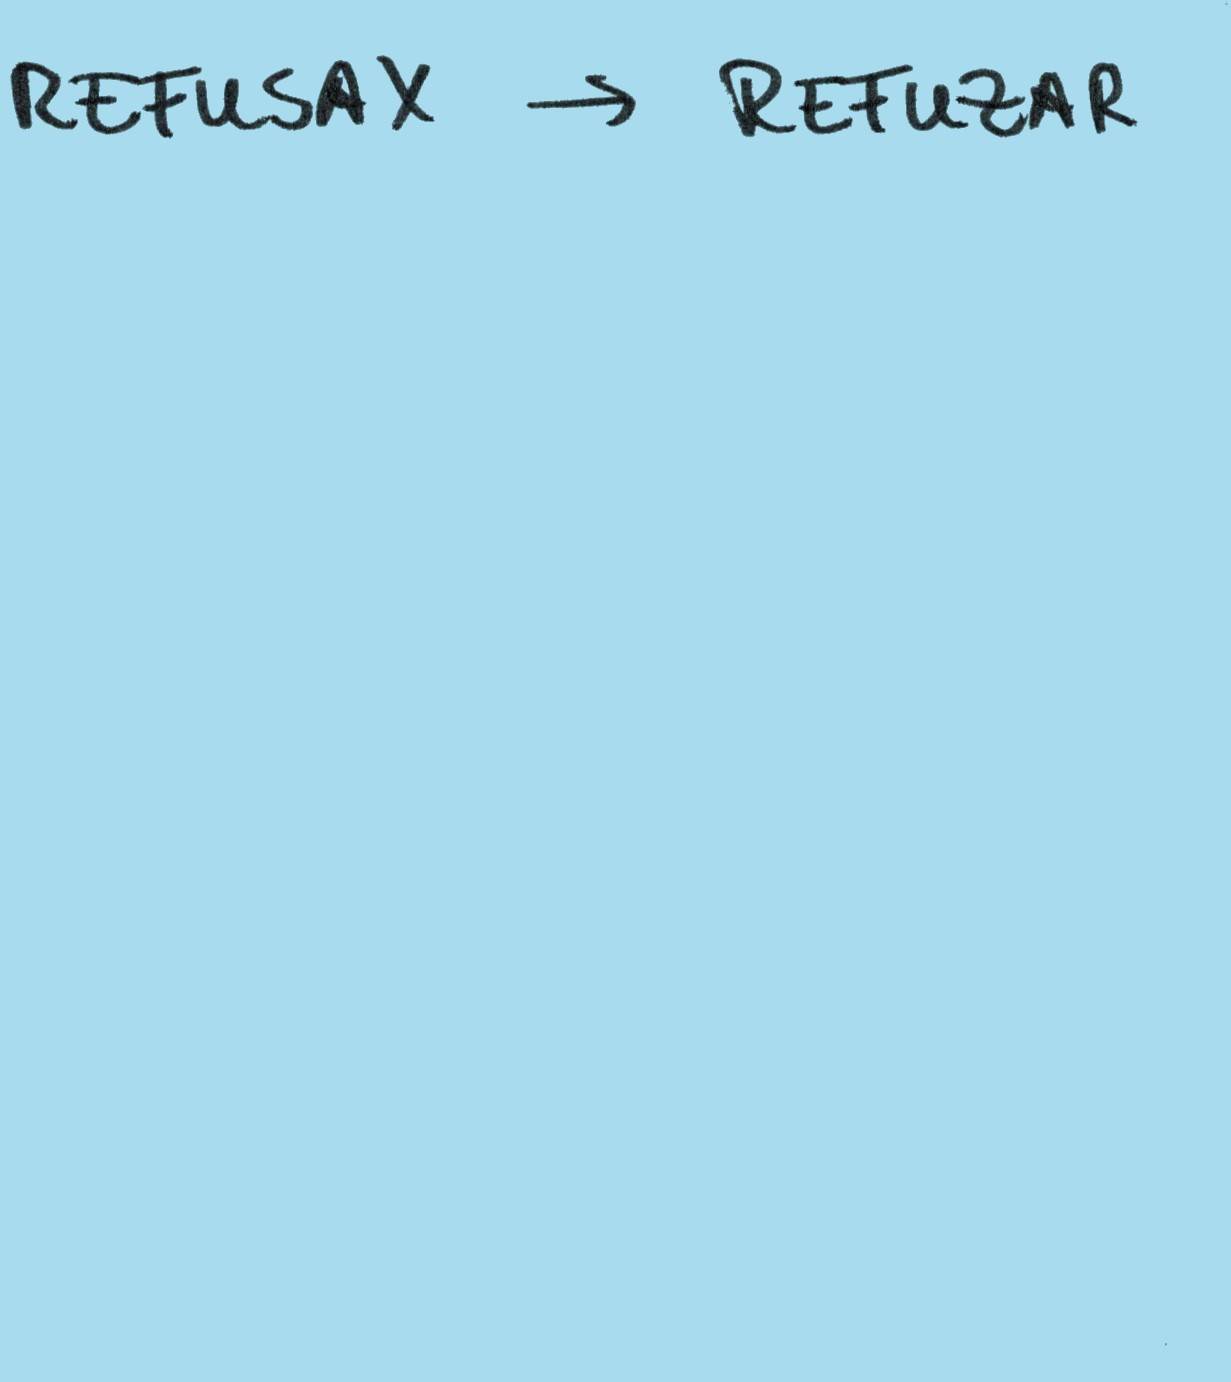 REFUSAX → REFUZAR